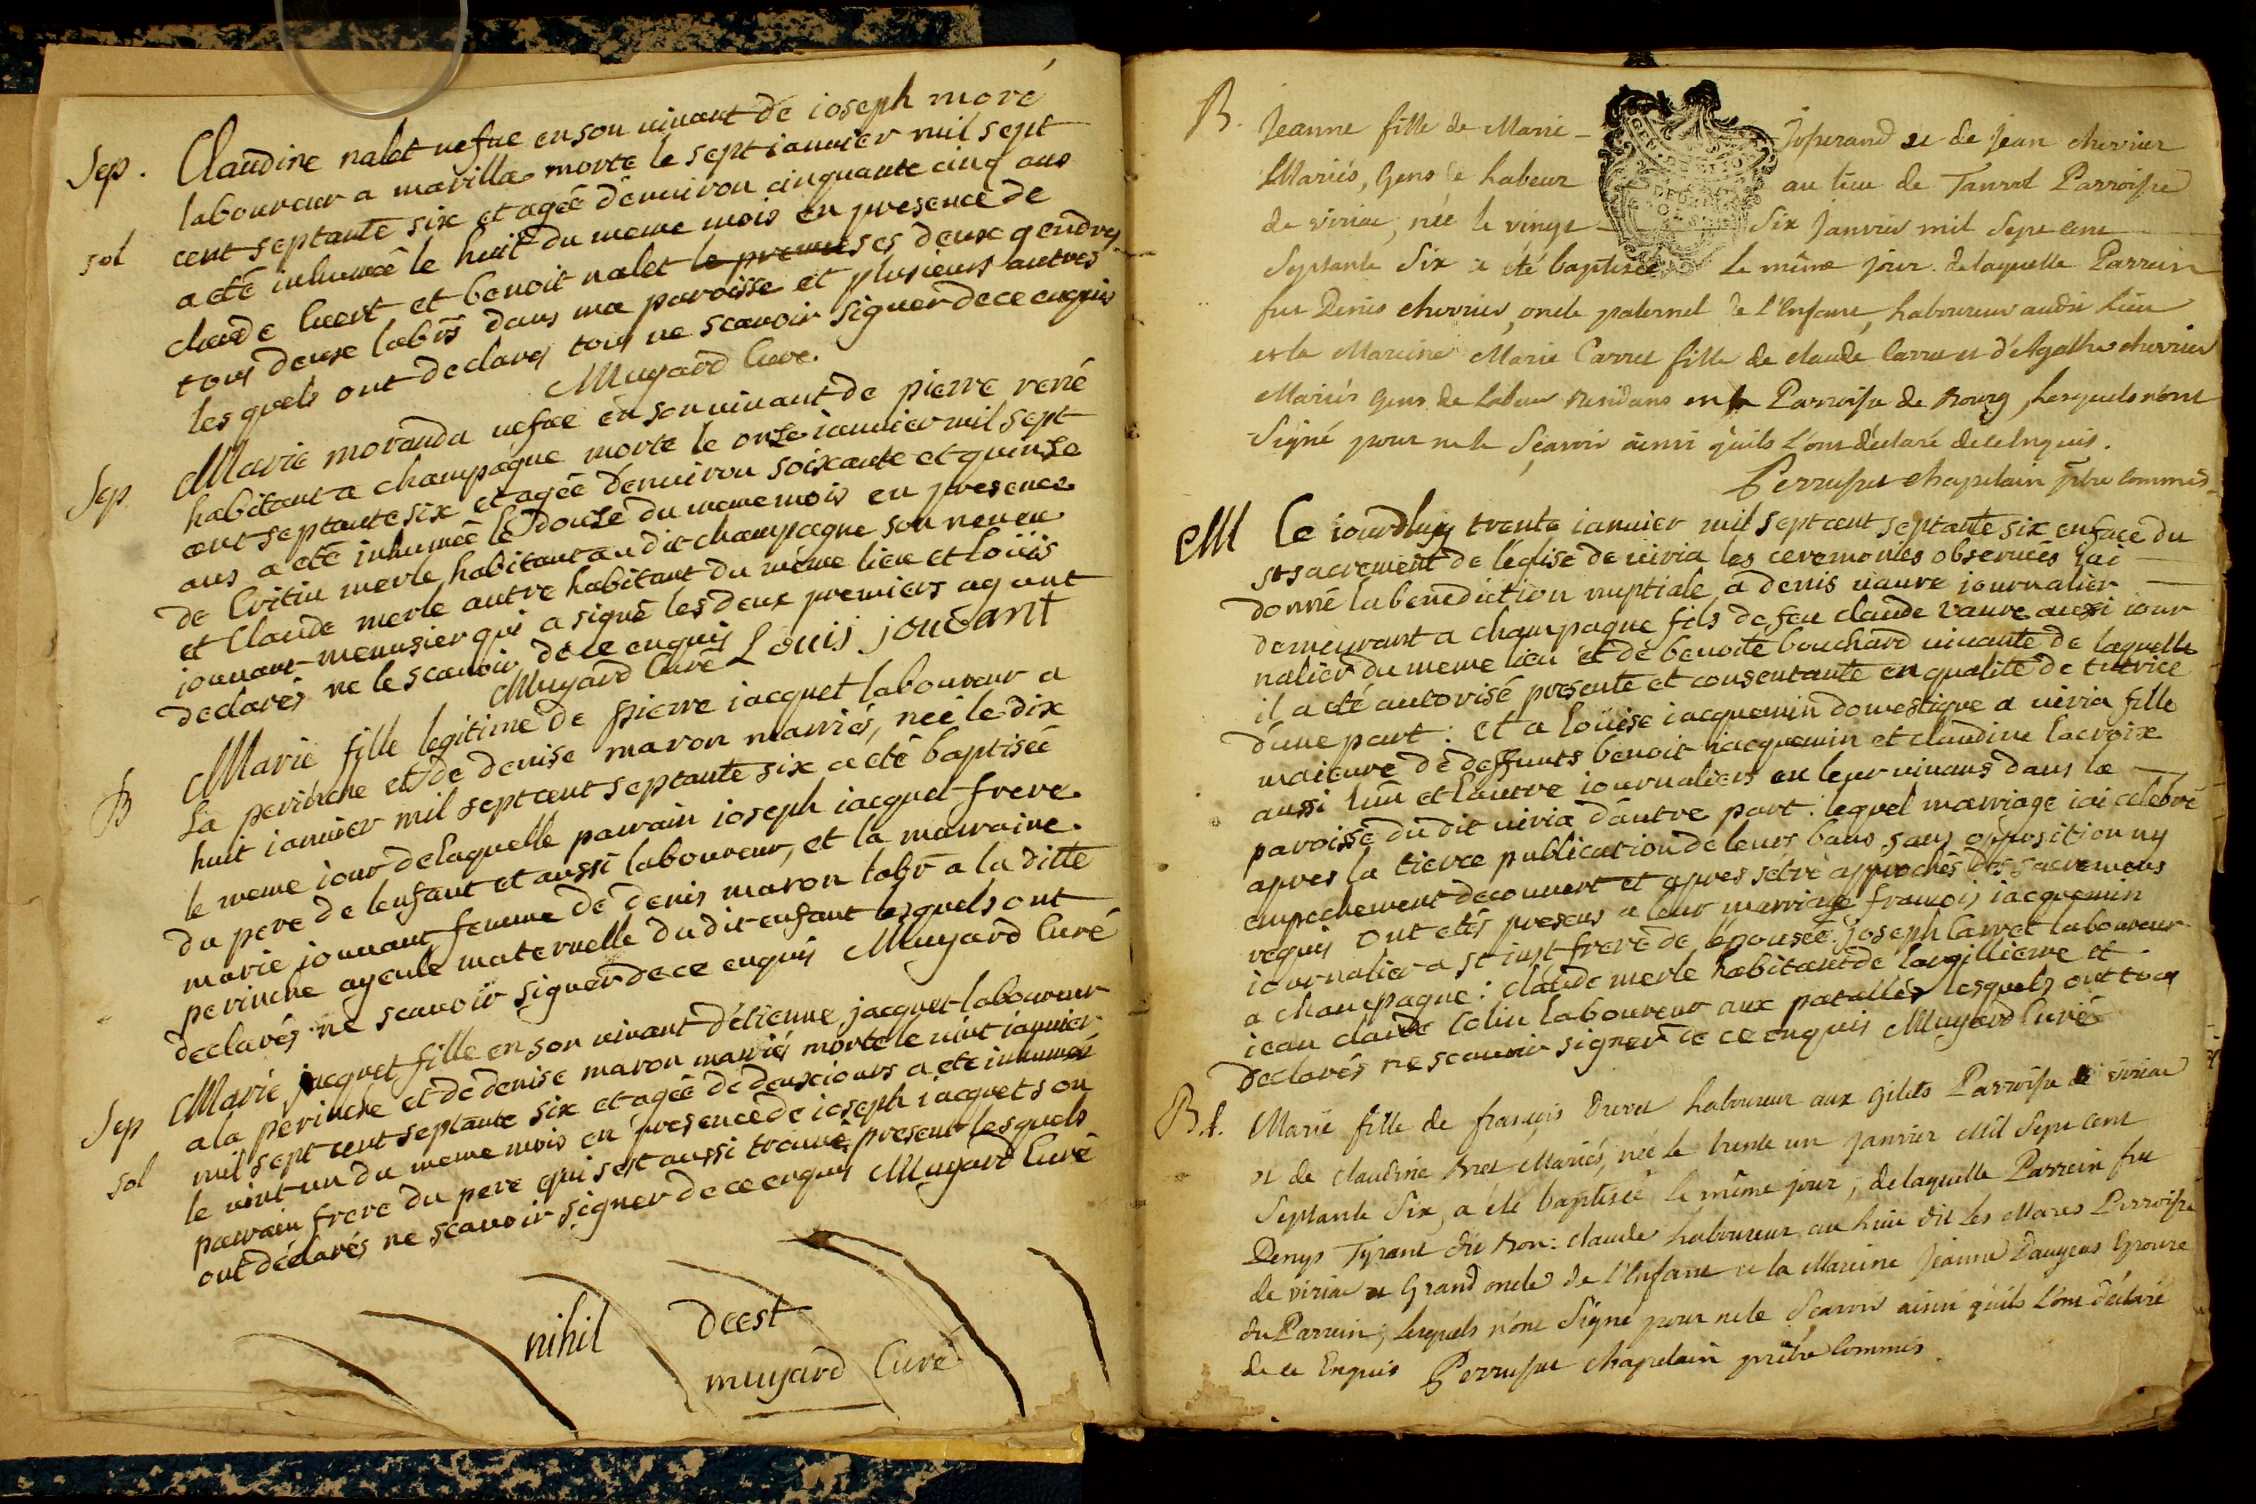 Sep. Claudine nalet vefue en son vivant de ioseph moré
laboureur a marilla morte le sept ianvier mil sept
sol cent septante six et agée d'environ cinquante cinq ans
a eté inhumeé le huit du meme mois en presence de
claude et benoit nalet le premie ses deux gendres
tous deux labrs dans ma paroisse et plusieurs autres
lesquels ont declarés tous ne scavoir signer de ce enquis
Muyard Curé.
Sep Marie moranda vefue en son vivant de pierre rené
habitant a champagne morte le onse ianvier mil sept
cent septante six et agée d'environ soixante et quinse
ans a eté inhumeé le douse du meme mois en presence
de Critin merle habitant au dit champagne son neveu
et Claude merle autre habitant du même lieu et Loüis
iouvant menusier qui a signé les deux premiers ayant
declarés ne le scavoir de ce enquis Louis jouvant
Muyard Curé
B Marie fille legitime de pierre iacquet laboureur a
La perinche et de denise maron marriés, neé le dix
huit ianvier mil sept cent septante six a eté baptiseé
le meme iour de laquelle parrain ioseph iacquet frere
du pere de lenfant et aussi laboureur, et la marraine
marie iouvant femme de denis maron labr a la ditte
perinche ayeule maternelle du dit enfant lesquels ont
declarés ne scavoir signer de ce enquis Muyard Curé
Sep Marie jacquet fille en son vivant d'etienne jacquet laboureur
a la perinche et de denise maron marriés morte le vint ianvier
sol mil sept cent septante six et agée de deux iours a eté inhumeé
le vint un du meme mois en presence de ioseph iacquet son
parrain frere du pere qui s'est aussi trouvé present lesquels
ont déclarés ne scavoir signer de ce enquis Muyard Curé
nihil deest
muyard Curé
B. Jeanne fille de Marie Josserand et de Jean chevrier
Mariés, Gens de Labeur au lieu de Tanvol Parroisse
de viriac, née le vingt Six Janvier mil Sept cent
Septante Six a été baptisée le même jour. de laquelle Parrein
fut Denis chevrier, oncle paternel de l'Enfant, Laboureur audit Lieu
et la Mareine Marie Carret fille de claude Carret et d'Agathe chevrier
Mariés Gens de Labeur Residans en la Parroisse de Bourg, Lesquels n'ont
Signé pour ne le Sçavoir ainsi qu'ils L'ont déclaré de ce Enquis.
Perrusset chapelain prtre commis
M Ce iourdhuy trente ianvier mil sept cent septante six en face du
st sacrement de l'église de viria les ceremonies observeés iai
donné la benediction nuptiale a denis vavre iournalier
demeurant a champagne fils de feu claude vavre aussi iour
nalier du meme lieu et de benoite bouchard vivante de laquelle
il a eté autorisé presente et consentante en qualité de tutrice
d'une part : et a Loüise iacquemin domestique a viria fille
maieure de deffunts benoit iacquemin et claudine lacroix
aussi l'un et l'autre iournaliers en leur vivans dans la
paroisse du dit viria d'autre part. lequel marriage iai celebré
apres la tierce publication de leurs bans sans opposition ny
empechement decouvert et apres sétre approchés des sacremens
requis ont etés presens a leur marriage francois iacquemin
iournalier a st iust frere de l'epouseé. joseph Carret laboureur
a champagne : claude merle habitant de lavillierre et
iean claude Colin laboureur aux patalles lesquels ont tous
declarés ne scavoir signer de ce enquis Muyard Curé
B.d. Marie fille de françois Duret Laboureur aux Gilets Parroisse de viriac
et de Claudine Bret Mariés, née le trente un Janvier Mil Sept cent
Septante Six, a été baptiseé le même jour, de laquelle Parrein fut
Denys Tyrant dit Bon : claude Laboureur au Lieu dit Les Mares Parroisse
de viriac et Grand oncle de l'Enfant et la Mareine Jeanne Epouse
du Parrein, lesquels n'ont Signé pour ne le Sçavoir ainsi qu'ils L'ont déclaré
de ce Enquis Perrusset chapelain prêtre commis